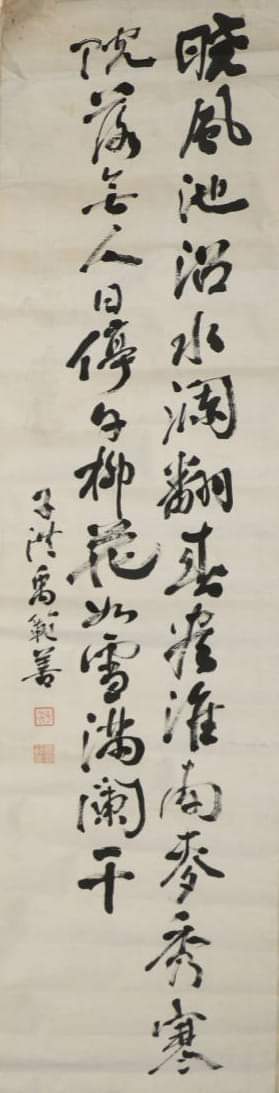 曉風池沼水瀾翻春盡淮南麥秀寒
院落無人日停午柳花如雪滿闌干
子洪禹範善